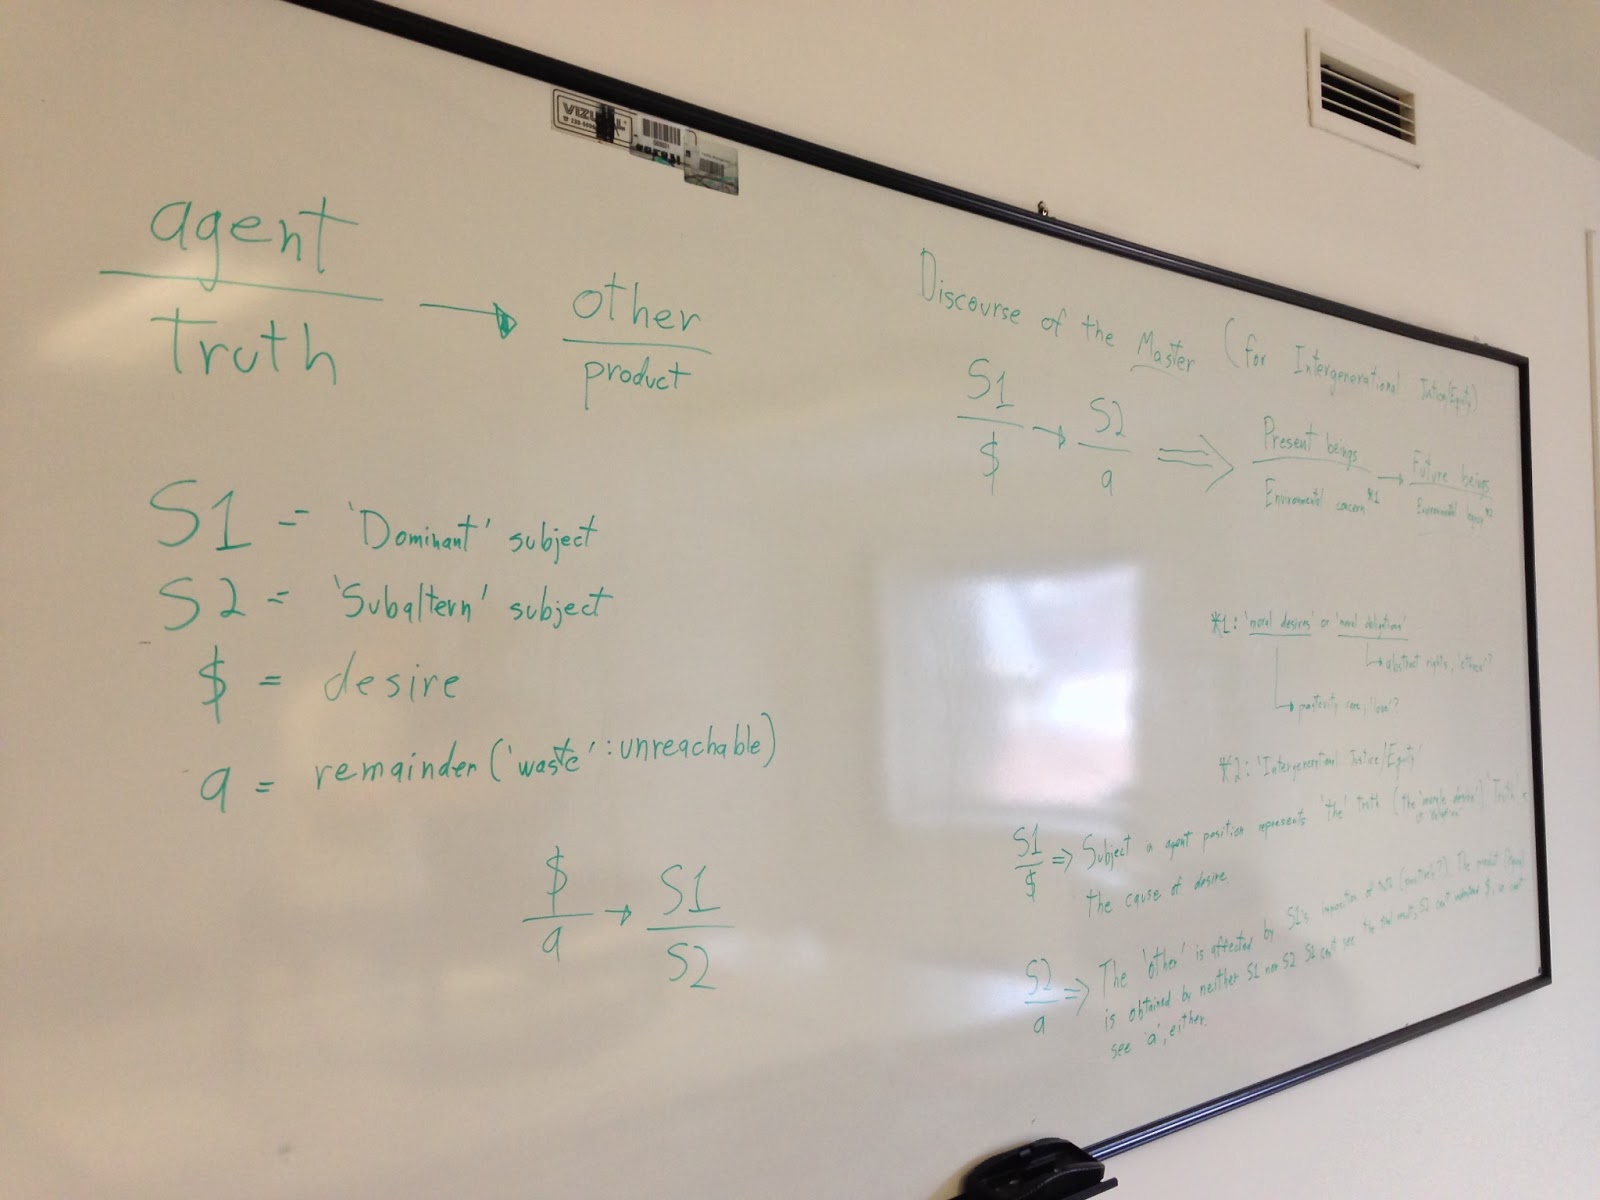 VIZU
agent
truth
→
other
product
S1 = 'Dominant' subject
S2 = 'Subaltern' subject
$ = desire
a = remainder ('waste' : unreachable)
$
a
→
S1
S2
Discourse of the Master (for Intergenerational Justice/Equity)
S1
$
→
S2
a
⇒
Present beings
Environmental concern*1
→
Future beings
Environmental legacy*2
*1: 'moral desires' or 'moral obligations'
↳ abstract rights, 'ethics'?
↳ posterity care, 'love'?
*2: 'Intergenerational Justice/Equity'
S1
$
⇒ Subject in agent position represents 'the' truth (the
Truth is
the cause of desire.
S2
a
⇒ The 'other' is affected by S1's imposition of truth (positively?). The product (legacy)
is obtained by neither S1 nor S2. S1 can't see the final result, S2 can't
see 'a', either.